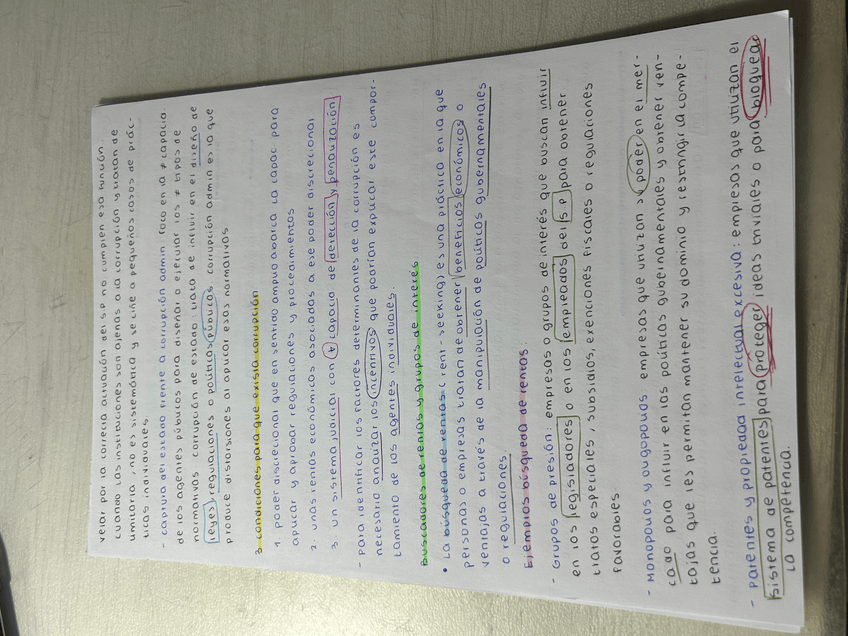 velar por la correcta actuación del S.P no complen esa función.
cuando las instituciones son ajenas a la corrupción y tratan de
limitarla, no es sistemática y se ciñe a pequeños casos de prác-
ticas individuales
- captura del estado frente a corrupción admin foco en la ≠ capacia.
de los agentes públicos para diseñar o ejecutar los ≠ tipos de
normativas corrupción de estado trata de influir en el diseño de
leyes, regulaciones o políticas públicas corrupción admin es la que
produce distorsiones al aplicar esas normativas.
3 condiciones para que exista corrupción
1 poder discrecional que en sentido amplio abarca la capac para
aplicar y aprobar regulaciones y procedimientos
2. unas rentas económicas asociadas a ese poder discrecional
3 un sistema judicial con capaca de detección y penalización
- para identificar los factores determinantes de la corrupción es
necesario analizar los incentivos que podrían explicar este compor-
tamiento de los agentes individuales.
Buscadores de rentas y grupos de interés
• La búsqueda de rentas (rent-seeking) es una práctica en la que
personas o empresas tratan de obtener beneficios económicos o
ventajas a través de la manipulación de políticas gubernamentales
o regulaciones
Ejemplos búsqueda de rentas:
- Grupos de presión: empresas o grupos de interés que buscan influir
en los legisladores o en los empleados del S.P para obtener
tratos especiales, subsidios, exenciones fiscales o regulaciones
favorables
- Monopolios y oligopolios empresas que utilizan su poder en el mer-
cado para influir en las políticas gubernamentales y obtener ven-
tajas que les permitan mantener su dominio y restringir la compe-
tencia.
- Patentes y propiedad intelectual excesiva: empresas que utilizan el
sistema de patentes para proteger ideas triviales o para bloquear
la competencia.